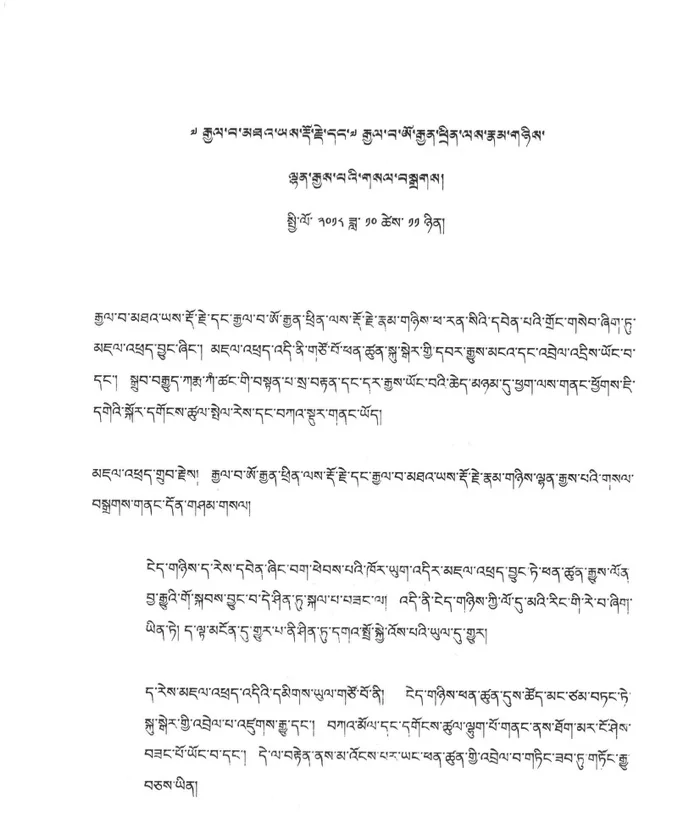 ༧ རྒྱལ་བ་མཐའ་ཡས་རྡོ་རྗེ་དང་༧ རྒྱལ་བ་ཨོ་རྒྱན་ཕྲིན་ལས་རྣམ་གཉིས་
ལྷན་རྒྱས་པའི་གསལ་བསྒྲགས།
སྤྱི་ལོ་ ༢༠༡༨ ཟླ་ ༡༠ ཚེས་ ༡༡ ཉིན།
རྒྱལ་བ་མཐའ་ཡས་རྡོ་རྗེ་དང་རྒྱལ་བ་ཨོ་རྒྱན་ཕྲིན་ལས་རྡོ་རྗེ་རྣམ་གཉིས་ཕ་རན་སིའི་དབེན་པའི་གྲོང་གསེབ་ཞིག་ཏུ་
མཇལ་འཕྲད་བྱུང་ཞིང་། མཇལ་འཕྲད་འདི་ནི་གཙོ་བོ་ཕན་ཚུན་སྐུ་སྒེར་གྱི་དབར་རྒྱུས་མངའ་དང་འབྲེལ་འདྲིས་ཡོང་བ་
དང་། སྒྲུབ་བརྒྱུད་ཀརྨ་ཀཾ་ཚང་གི་བསྟན་པ་སྲ་བརྟན་དང་དར་རྒྱས་ཡོང་བའི་ཆེད་མཉམ་དུ་ཕྱག་ལས་གནང་ཕྱོགས་ཇི་
དགེའི་སྐོར་དགོངས་ཚུལ་སྤེལ་རེས་དང་བཀའ་སྡུར་གནང་ཡོད།
མཇལ་འཕྲད་གྲུབ་རྗེས། རྒྱལ་བ་ཨོ་རྒྱན་ཕྲིན་ལས་རྡོ་རྗེ་དང་རྒྱལ་བ་མཐའ་ཡས་རྡོ་རྗེ་རྣམ་གཉིས་ལྷན་རྒྱས་པའི་གསལ་
བསྒྲགས་གནང་དོན་གཤམ་གསལ།
ངེད་གཉིས་ད་རེས་དབེན་ཞིང་བག་ཕེབས་པའི་ཁོར་ཡུག་འདིར་མཇལ་འཕྲད་བྱུང་ཏེ་ཕན་ཚུན་རྒྱུས་ལོན་
བྱ་རྒྱུའི་གོ་སྐབས་བྱུང་བ་དེ་ཤིན་ཏུ་སྐལ་པ་བཟང་ལ། འདི་ནི་ངེད་གཉིས་ཀྱི་ལོ་དུ་མའི་རིང་གི་རེ་བ་ཞིག་
ཡིན་ཏེ། ད་ལྟ་མངོན་དུ་གྱུར་པ་ནི་ཤིན་ཏུ་དགའ་སྤྲོ་སྐྱེ་འོས་པའི་ཡུལ་དུ་གྱུར།
ད་རེས་མཇལ་འཕྲད་འདིའི་དམིགས་ཡུལ་གཙོ་བོ་ནི། ངེད་གཉིས་ཕན་ཚུན་དུས་ཚོད་མང་ཙམ་བཏང་ཏེ་
སྐུ་སྒེར་གྱི་འབྲེལ་པ་འཛུགས་རྒྱུ་དང་། བཀའ་མོལ་དང་དགོངས་ཚུལ་ལྷུག་པོ་གནང་ནས་ཐོག་མར་ངོ་ཤེས་
བཟང་པོ་ཡོང་བ་དང་། དེ་ལ་བརྟེན་ནས་མ་འོངས་པར་ཡང་ཕན་ཚུན་གྱི་འབྲེལ་བ་གཏིང་ཟབ་ཏུ་གཏོང་རྒྱུ་
བཅས་ཡིན།